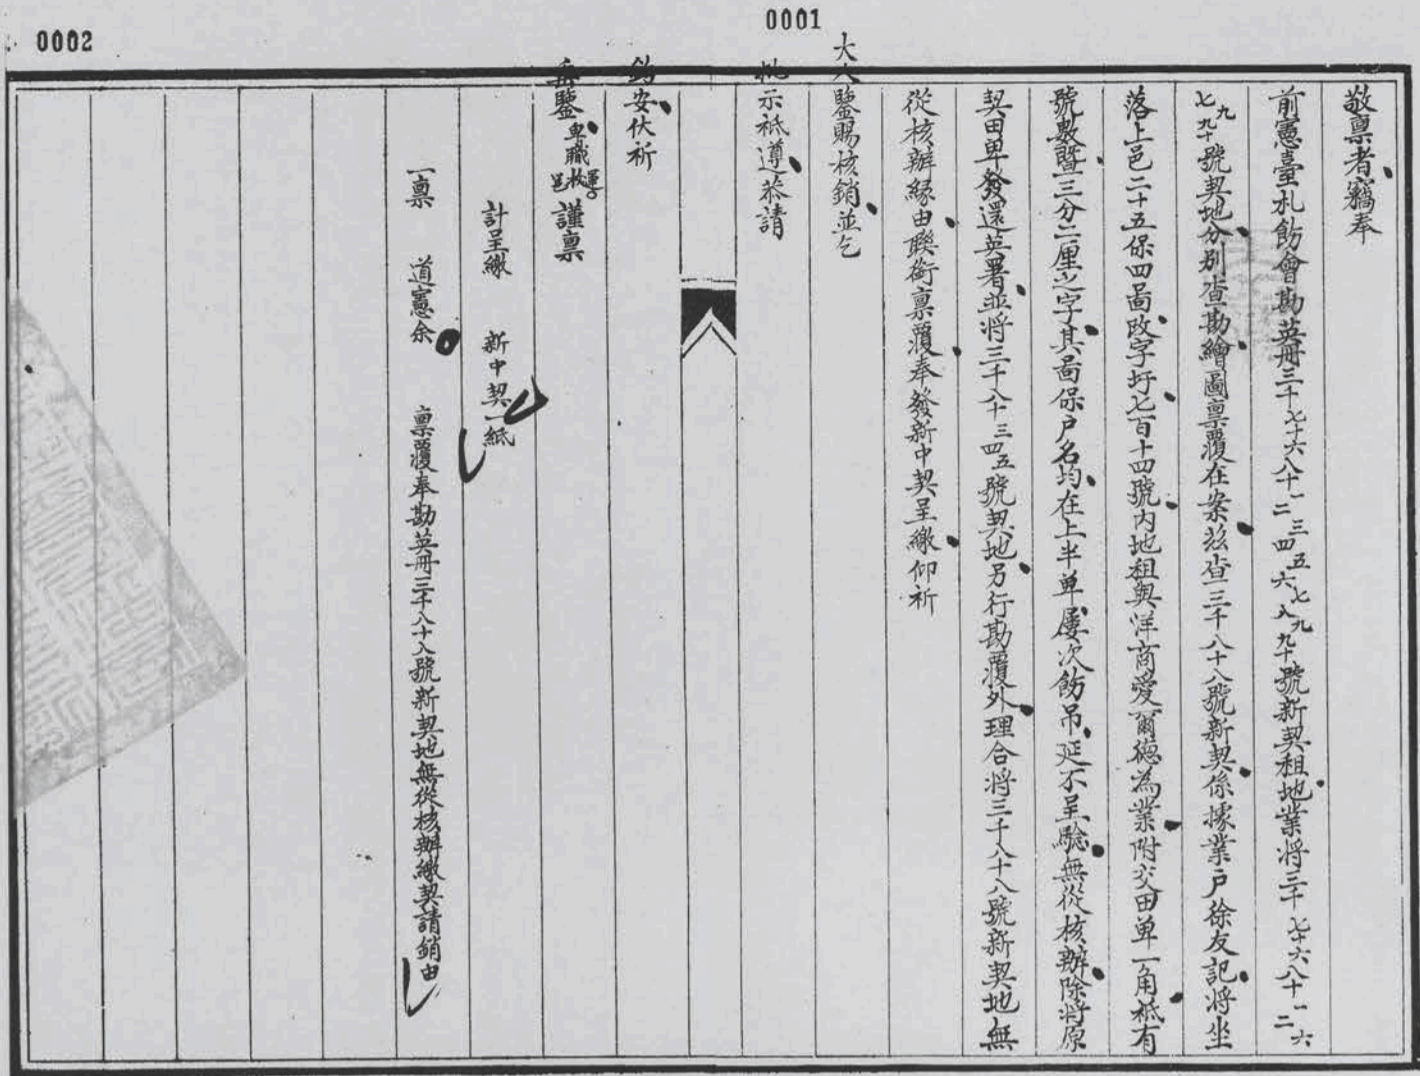 0001
0002
敬稟者竊奉
前憲臺札飭會勘英冊三千七十六八十一二三四五六七八九九十號新契租地業將三千七十六八十一二六
七九九十號契地分別查勘繪圖稟覆在案茲查三千八十八號新契係據業戶徐友記將坐
落上邑二十五保四啚改字圩七百十四號內地租與洋商愛爾德為業附交田單一角祗有
號數暨三分二厘之字其啚保戶名均在上半單屢次飭吊延不呈驗無從核辦除將原
契田單發還英署並將三千八十三四五號契地另行勘覆外理合將三千八十八號新契地無
從核辦緣由聯銜稟覆奉發新中契呈繳仰祈
大人鑒賜核銷並乞
批示祗遵恭請
鈞安伏祈
垂鑒卑職謹稟
計呈繳 新中契一紙
一稟 道憲余 稟覆奉勘英冊三千八十八號新契地無從核辦繳契請銷由